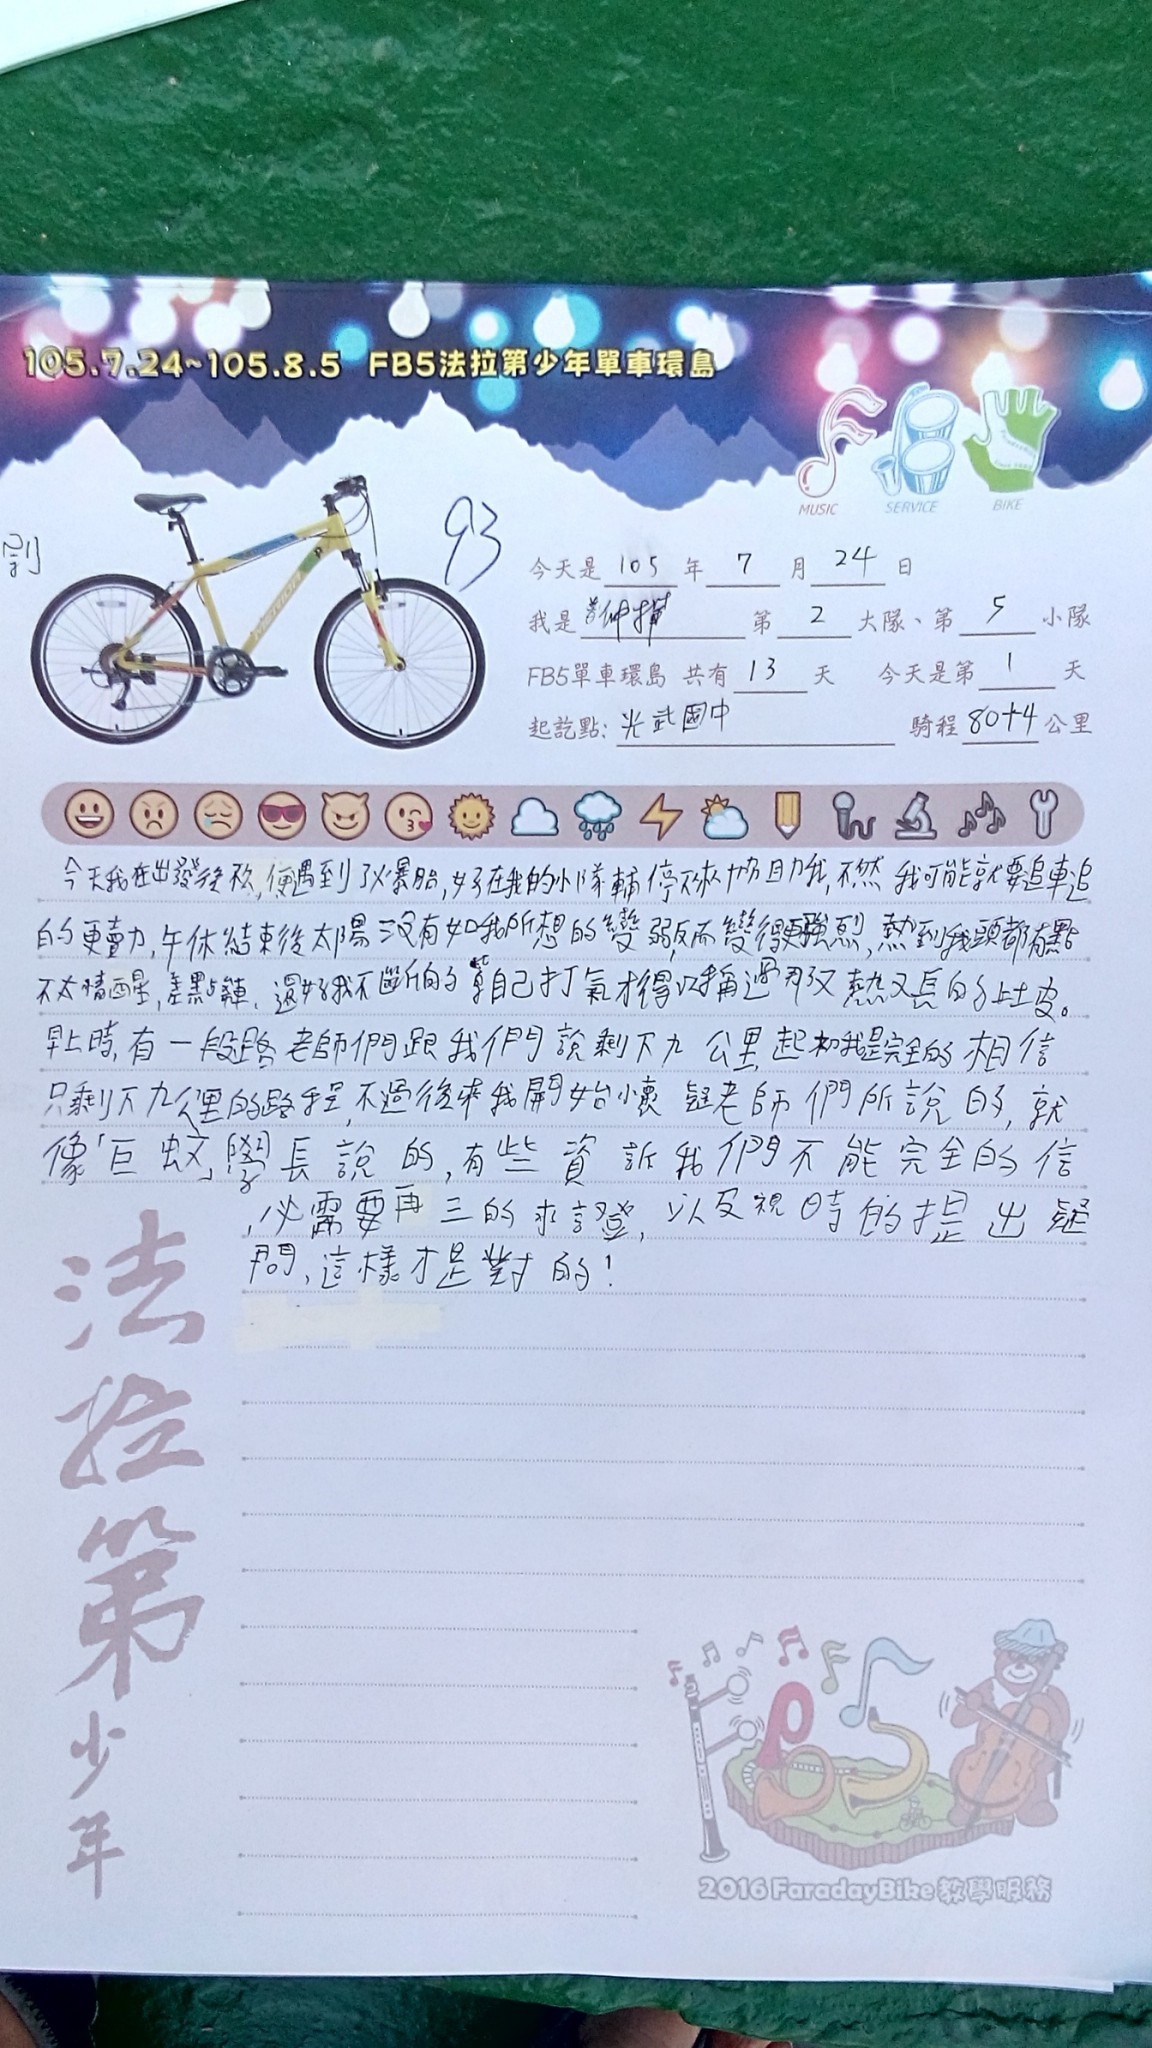 105.7.24~105.8.5 FB5法拉第少年單車環島
MUSIC SERVICE BIKE
93
今天是 105 年 7 月 24 日
我是 許仲揮 第 2 大隊、第 5 小隊
FB5單車環島 共有 13 天 今天是第 1 天
起訖點: 光武國中 騎程 80+4 公里
MERIDA
今天我在出發後不久,便遇到了爆胎,好在我的小隊輔停下來協助我,不然我可能就要追車追
的更賣力,午休結束後太陽沒有如我所想的變弱,反而變得更強烈,熱到我頭都有點
不太清醒,差點雷,還好我不斷的幫自己打氣才得以撐過那又熱又長的上坡。
早上時,有一段路老師們跟我們說剩下九公里,起初我是完全的相信
只剩下九公里的路程,不過後來我開始懷疑老師們所說的,就
像「巨蚊」學長說的,有些資訊我們不能完全的信
,必需要再三的求證,以及視時的提出疑
問,這樣才是對的!
法拉第少年
2016 FaradayBike教學服務